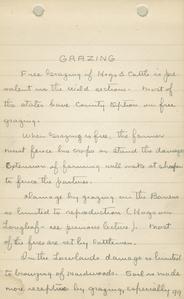 GRAZING
Free Grazing of Hogs & Cattle is pre
valent in the wild sections. Most of
the states have County option on free
grazing.
When Grazing is free, the farmer
must fence his crops or stand the damage.
Extension of farming will make it cheaper
to fence the pastures.
Damage by grazing in the Barrens
is limited to reproduction (Hogs on
Longleaf - see previous lecture). Most
of the fires are set by Cattlemen.
In the Lowlands damage is limited
to browsing of Hardwoods. Soil is made
more receptive by grazing, especially